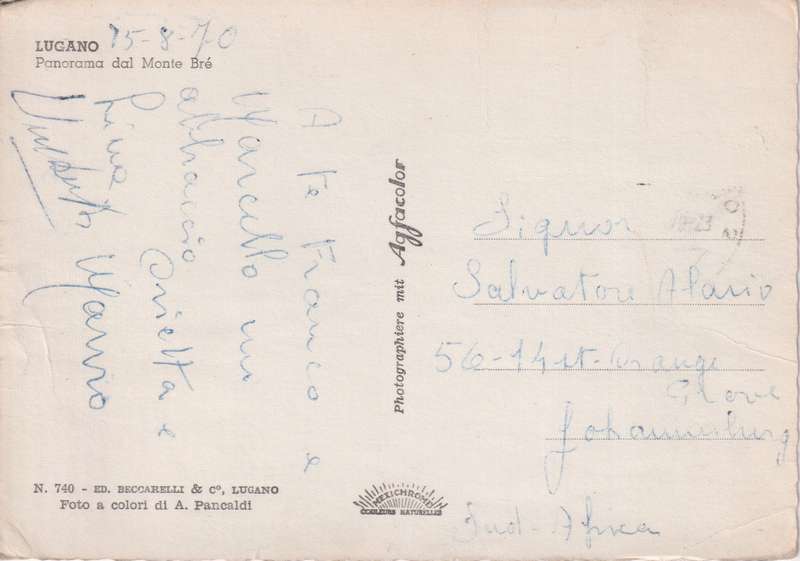 LUGANO 15-8-70
Panorama dal Monte Bré
A te Franco e
Marcello un
abbraccio
Orietta e
Luisa
Mario
Photographiere mit Agfacolor
Signor
Salvatore Alario
56-14 st. Orange
Grove
Johannesburg
Sud-Africa
N. 740 - ED. BECCARELLI & C°, LUGANO
Foto a colori di A. Pancaldi
MEXICHROME
COULEURS NATURELLES